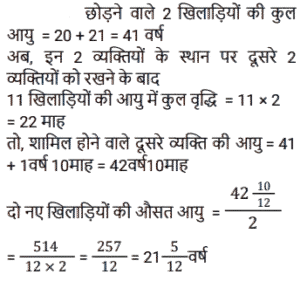 छोड़ने वाले 2 खिलाड़ियों की कुल
आयु = 20 + 21 = 41 वर्ष
अब, इन 2 व्यक्तियों के स्थान पर दूसरे 2
व्यक्तियों को रखने के बाद
11 खिलाड़ियों की आयु में कुल वृद्धि = 11 × 2
= 22 माह
तो, शामिल होने वाले दूसरे व्यक्ति की आयु = 41
+ 1वर्ष 10माह = 42वर्ष10माह
दो नए खिलाड़ियों की औसत आयु = \frac{42\frac{10}{12}}{2}
= \frac{514}{12 × 2} = \frac{257}{12} = 21\frac{5}{12}वर्ष